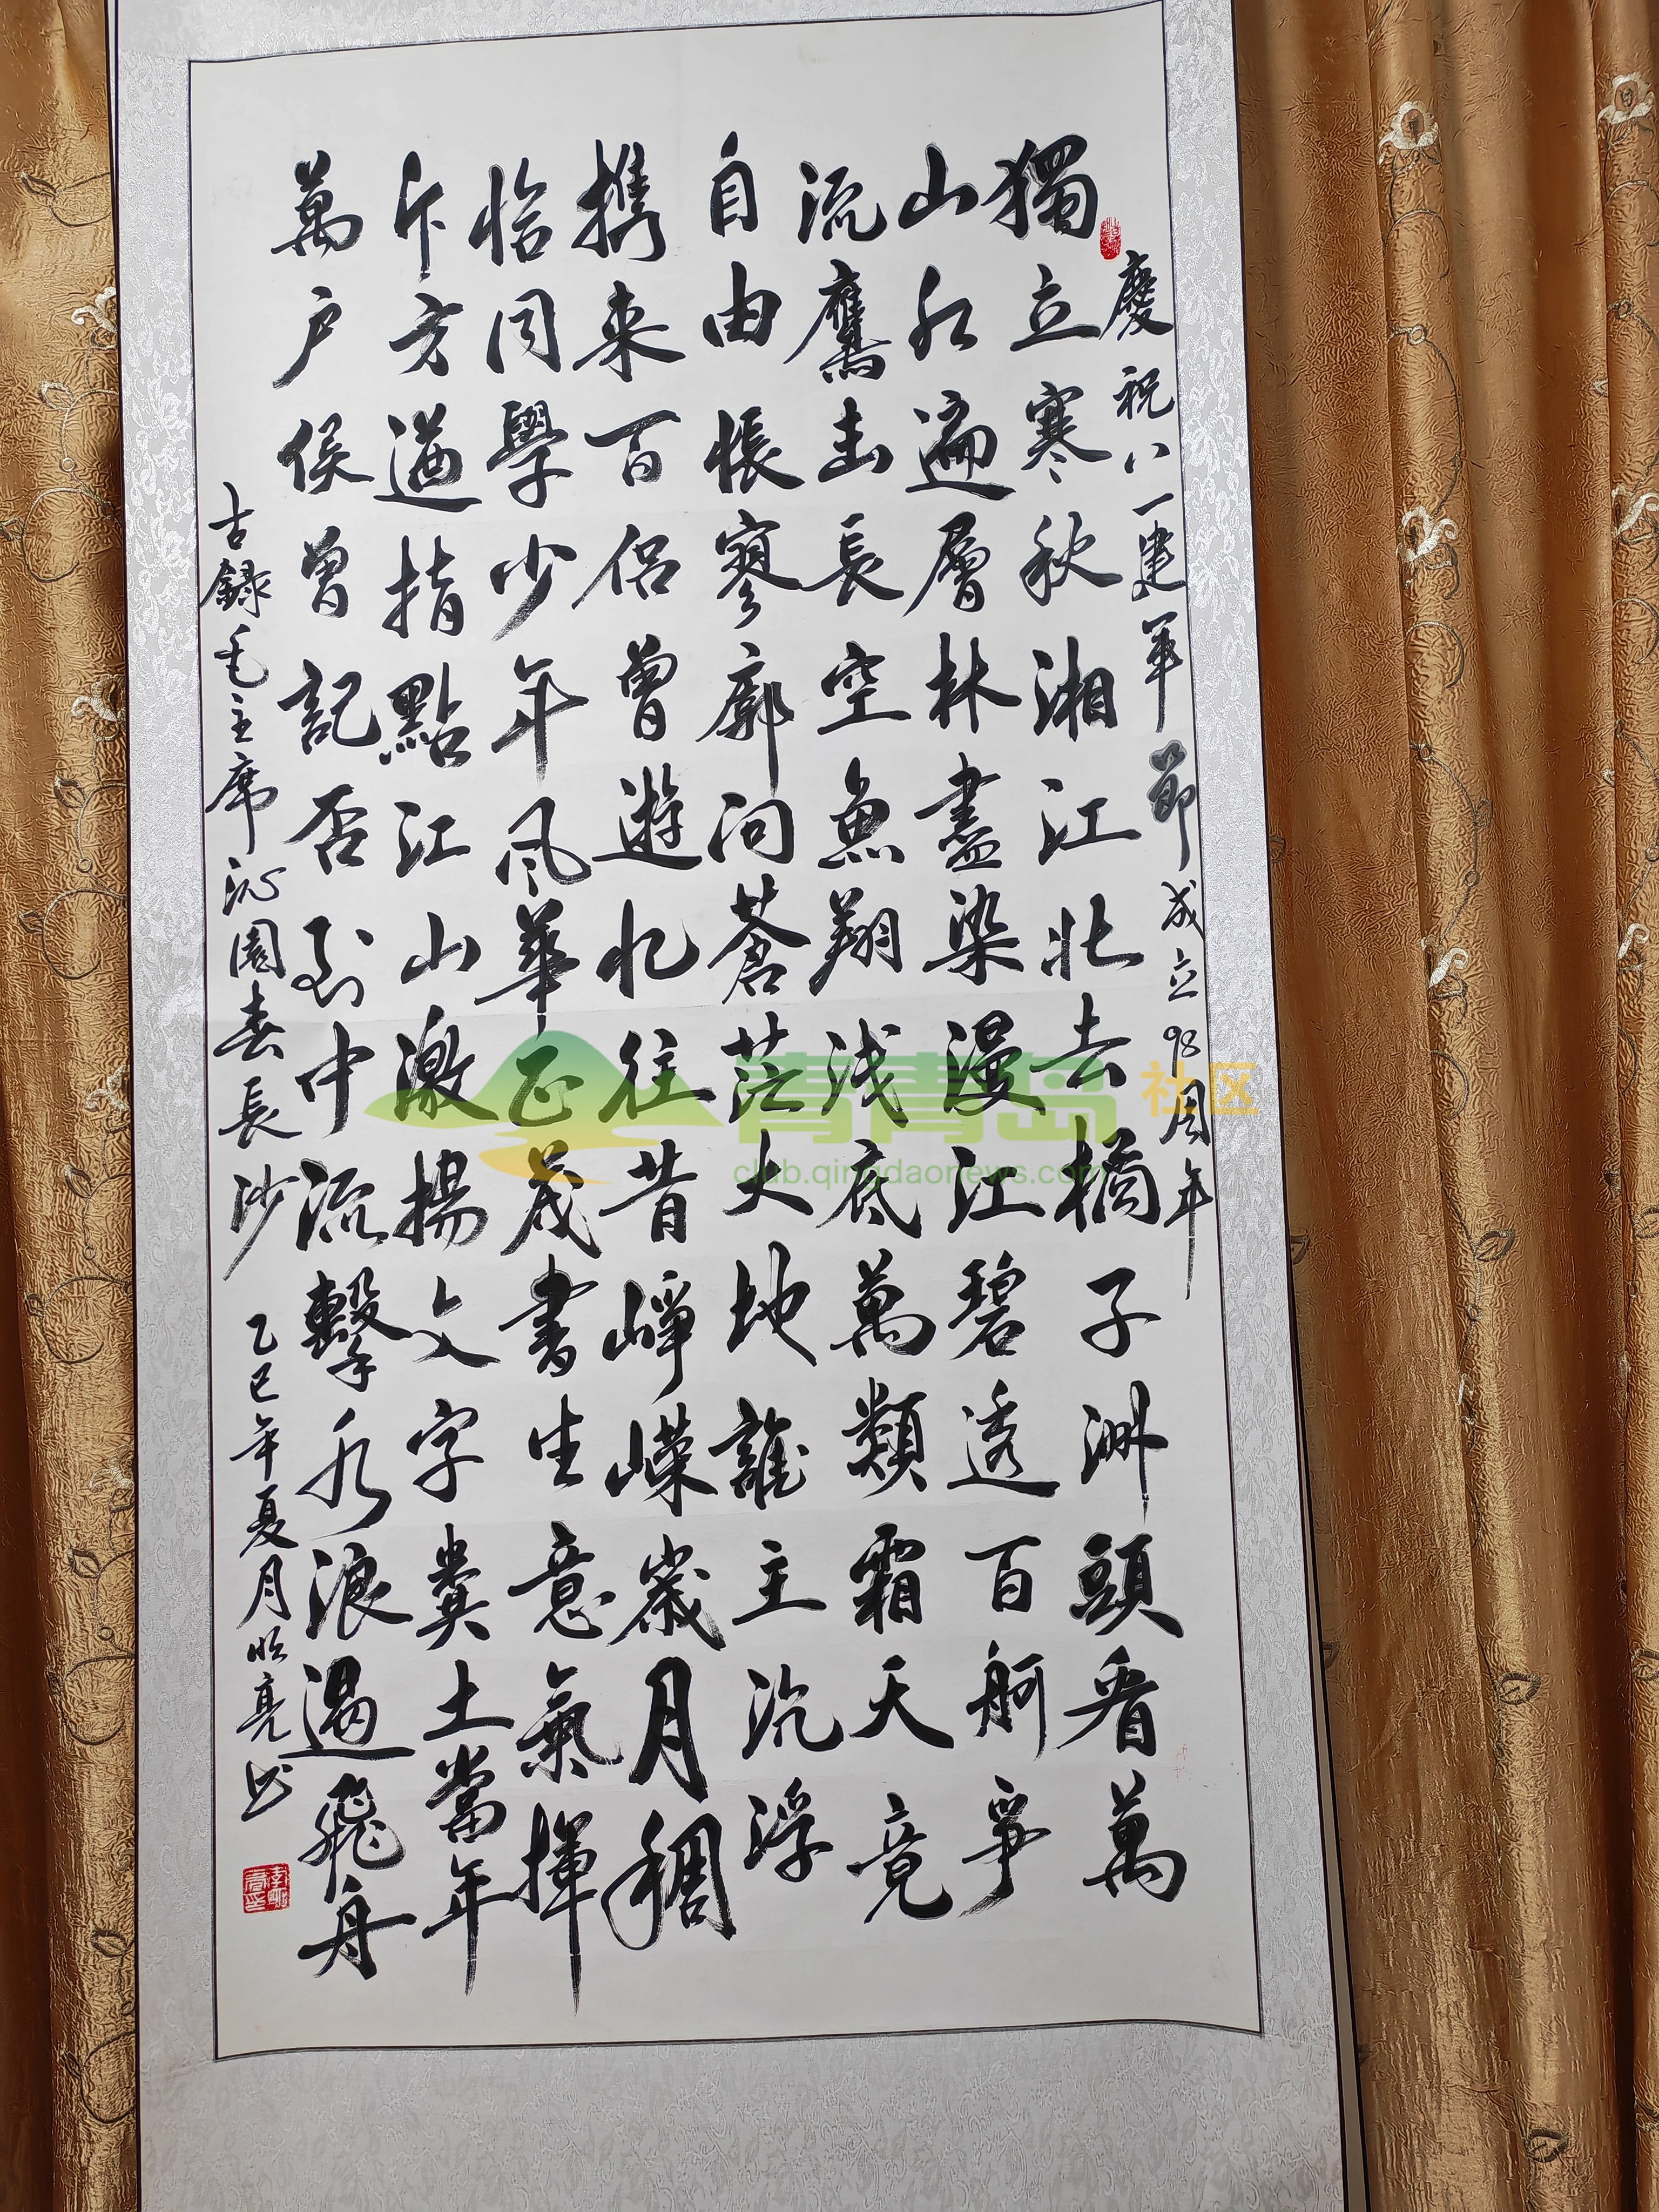 慶祝八一建軍節成立98周年
獨立寒秋湘江北去橘子洲頭看萬
山红遍層林盡染漫江碧透百舸爭
流鷹击長空魚翔浅底萬類霜天竞
自由悵寥廓问蒼茫大地誰主沉浮
携来百侣曾遊忆往昔崢嶸歲月稠
恰同學少年风華正茂書生意氣揮
斥方遒指點江山激揚文字糞土當年
萬户侯曾記否到中流擊水浪遏飛舟
古録毛主席沁園春長沙 乙巳年夏月明亮书
青青岛社区
club.qingdaonews.com